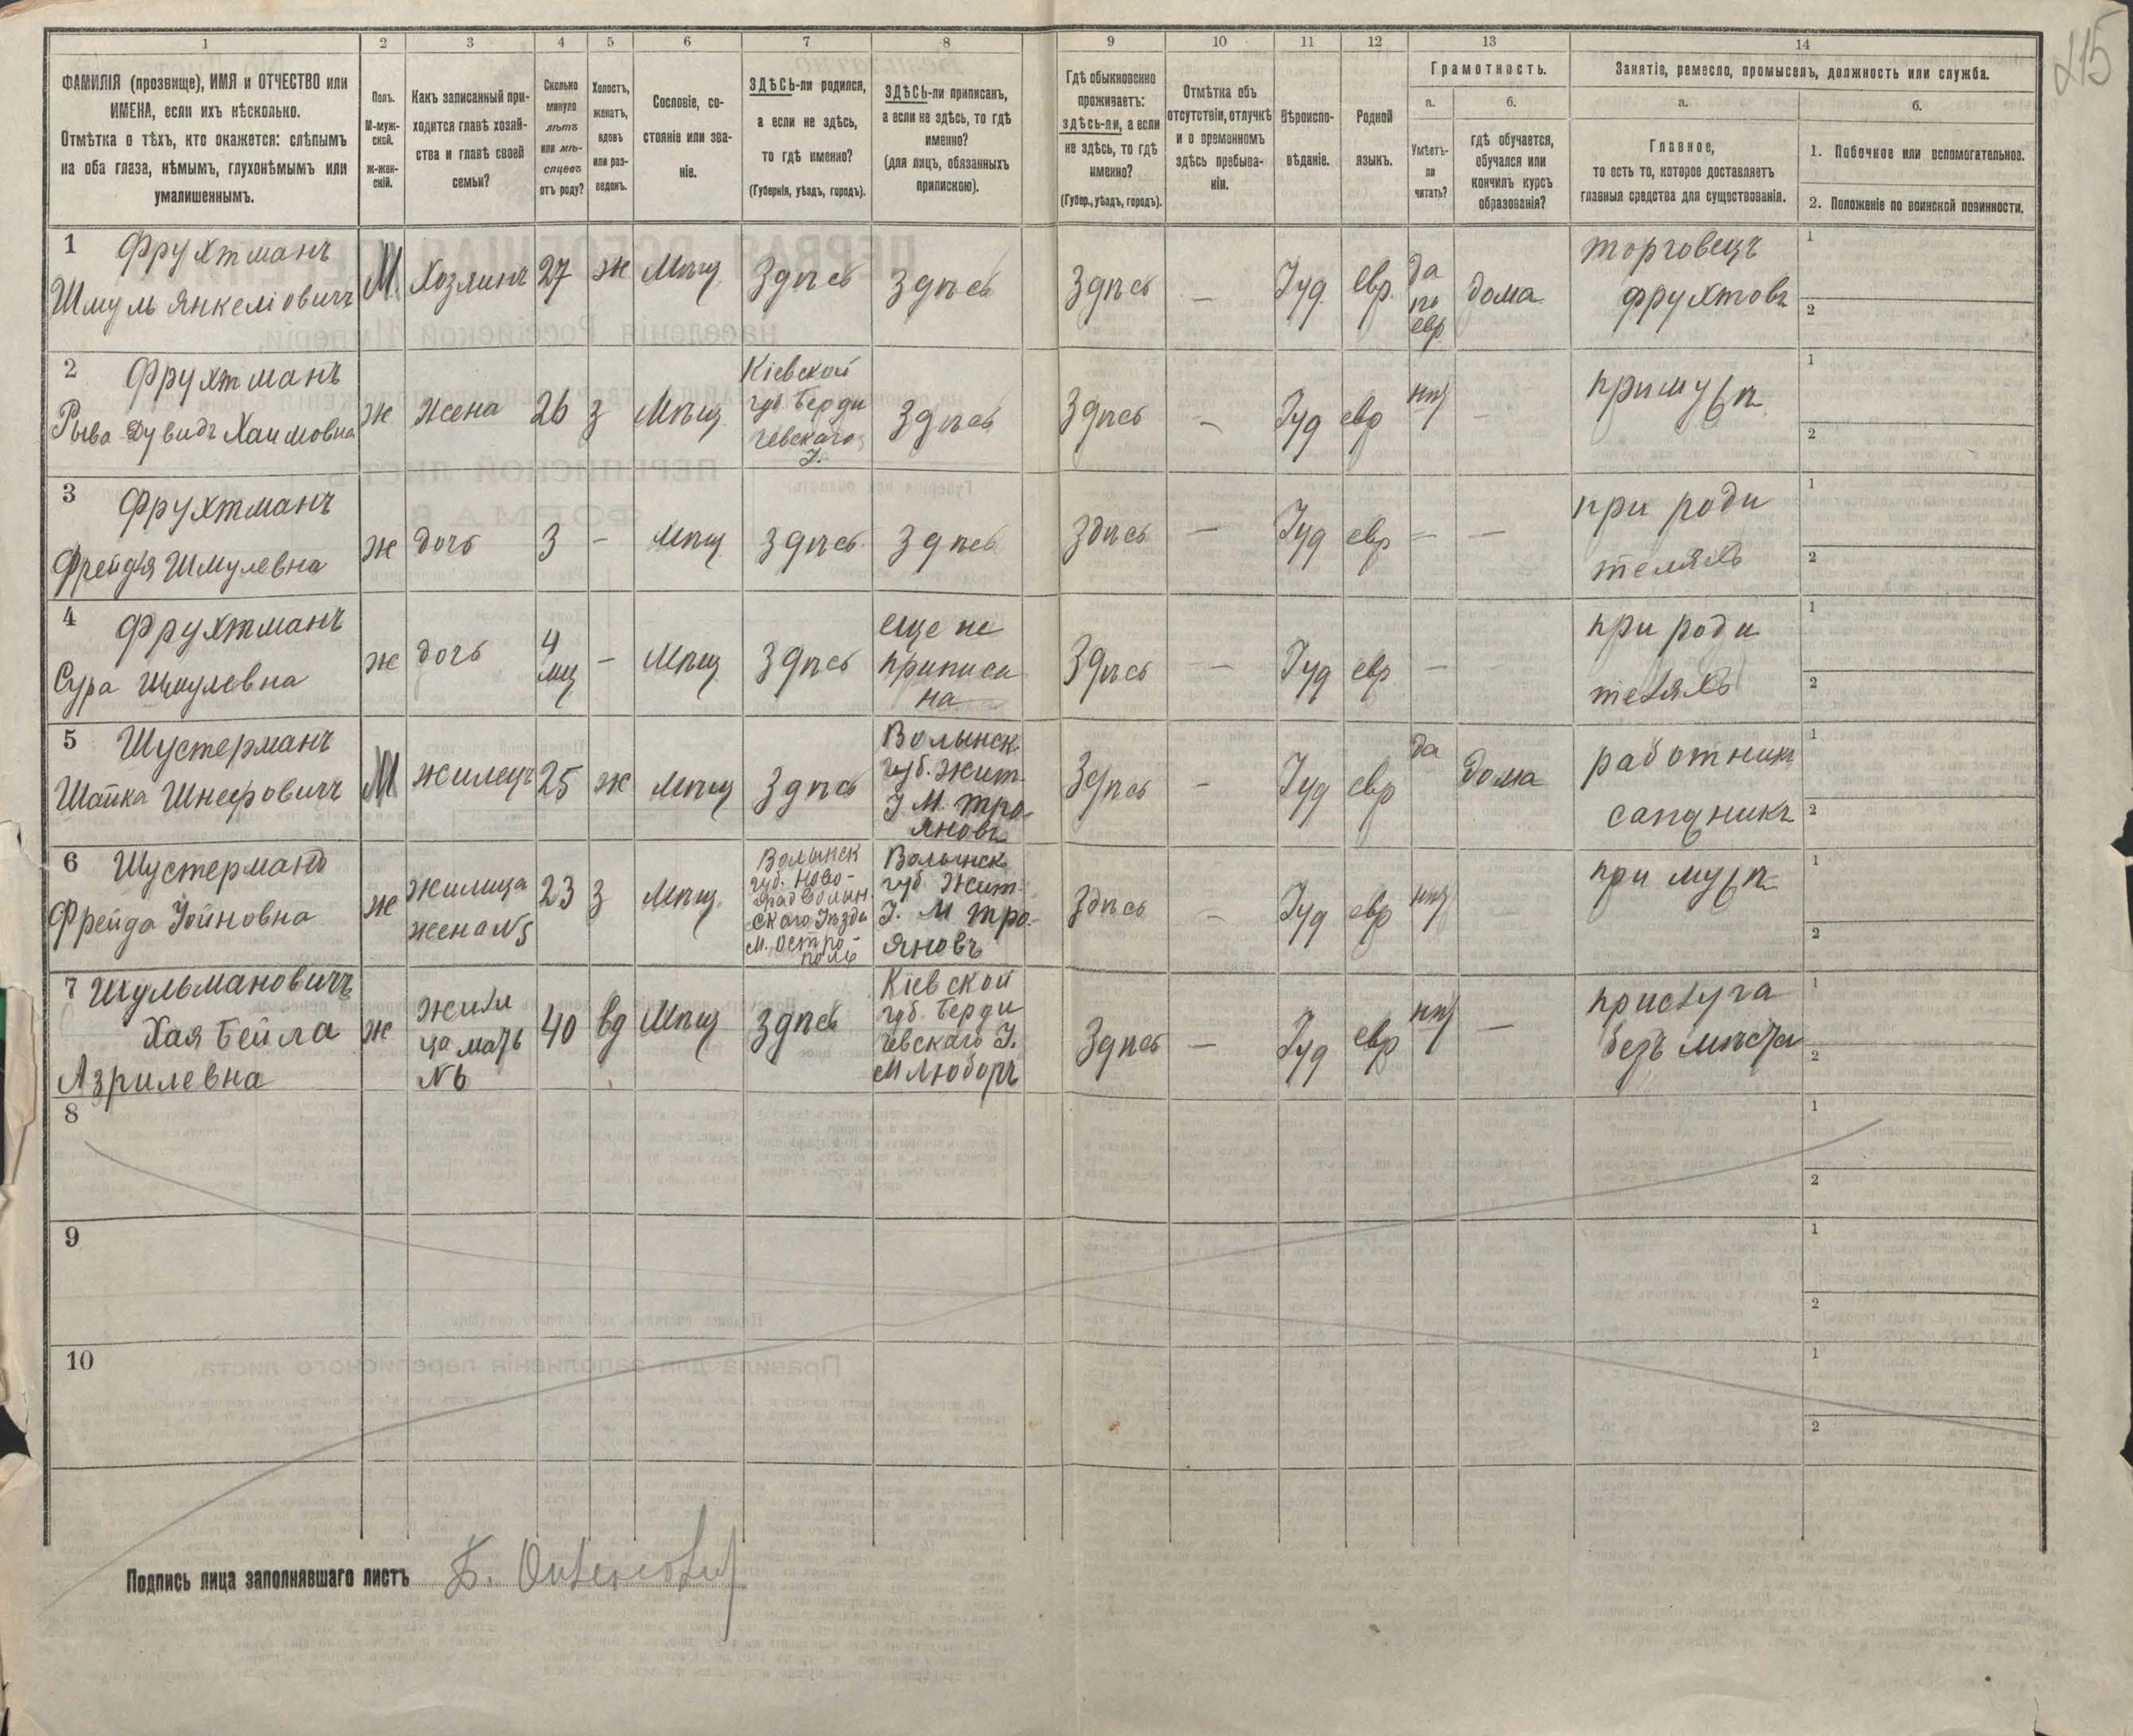 215
1 2 3 4 5 6 7 8 9 10 11 12 13 14
ФАМИЛІЯ (прозвище), ИМЯ и ОТЧЕСТВО или
ИМЕНА, если ихъ нѣсколько.
Отмѣтка о тѣхъ, кто окажется: слѣпымъ
на оба глаза, нѣмымъ, глухонѣмымъ или
умалишеннымъ.
Полъ.
М-муж-
ской.
ж-жен-
скій.
Какъ записанный при-
ходится главѣ хозяй-
ства и главѣ своей
семьи?
Сколько
минуло
лѣтъ
или мѣ-
сяцевъ
отъ роду?
Холостъ,
женатъ,
вдовъ
или раз-
веденъ.
Сословіе, со-
стояніе или зва-
ніе.
ЗДѢСЬ-ли родился,
а если не здѣсь,
то гдѣ именно?
(Губернія, уѣздъ, городъ).
ЗДѢСЬ-ли приписанъ,
а если не здѣсь, то гдѣ
именно?
(для лицъ, обязанныхъ
припискою).
Гдѣ обыкновенно
проживаетъ:
здѣсь-ли, а если
не здѣсь, то гдѣ
именно?
(Губер., уѣздъ, городъ).
Отмѣтка объ
отсутствіи, отлучкѣ
и о временномъ
здѣсь пребыва-
ніи.
Вѣроиспо-
вѣданіе.
Родной
языкъ.
Грамотность.
а.
Умѣетъ-
ли
читать?
б.
гдѣ обучается,
обучался или
кончилъ курсъ
образованія?
Занятіе, ремесло, промыселъ, должность или служба.
а.
Главное,
то есть то, которое доставляетъ
главныя средства для существованія.
б.
1. Побочное или вспомогательное.
2. Положеніе по воинской повинности.
1 Фрухтманъ
Шмуль Янкеліовичъ
М.
Хозяинъ
27
ж
Мѣщ
Здѣсь
Здѣсь
Здѣсь
—
Іуд
евр.
да
по
евр
дома
торговецъ
фруктовъ
1
2
2 Фрухтманъ
Рыва Дувидъ Хаимовна
ж
жена
26
з
Мѣщ
Кіевской
губ. Берди
чевскаго
У.
Здѣсь
Здѣсь
—
Іуд
евр
нѣт
—
при мужѣ
1
2
3 Фрухтманъ
Фрейдя Шмулевна
ж
дочь
3
—
мѣщ
Здѣсь
Здѣсь
Здѣсь
—
Іуд
евр
—
—
при роди
теляхъ
1
2
4 Фрухтманъ
Сура Шмулевна
ж
дочь
4
мц
—
мѣщ
Здѣсь
еще не
приписа
на
Здѣсь
—
Іуд
евр
—
при роди
теляхъ
1
2
5 Шустерманъ
Шайка Шнееровичъ
М
жилецъ
25
ж
мѣщ
Здѣсь
Волынск.
губ. Жит.
У М. Тро-
яновъ
Здѣсь
—
Іуд
евр
да
дома
работник
сапожникъ
1
2
6 Шустерманъ
Фрейда Уйновна
ж
жилица
жена N5
23
з
мѣщ.
Волынск
губ. Ново-
градволын
скаго Уѣзда
м. Остро-
поль
Волынск
губ Жит.
У. М Тро-
яновъ
Здѣсь
—
Іуд
евр
нѣт
при мужѣ
1
2
7 Шульмановичъ
Хая Бейла
Азрилевна
ж
жили
ца мать
N6
40
вд
Мѣщ
Здѣсь
Кіевской
губ. Берди
чевскаго У.
М Любаръ
Здѣсь
—
Іуд
евр
нѣт
—
прислуга
безъ мѣста
1
2
8
1
2
9
1
2
10
1
2
Подпись лица заполнявшаго листъ